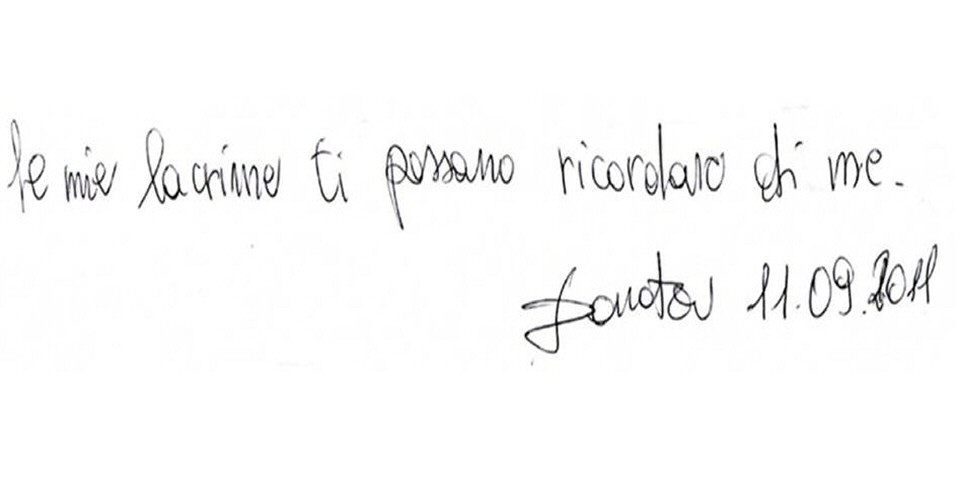 le mie lacrime ti possano ricordare di me.
Donata 11.09.2011